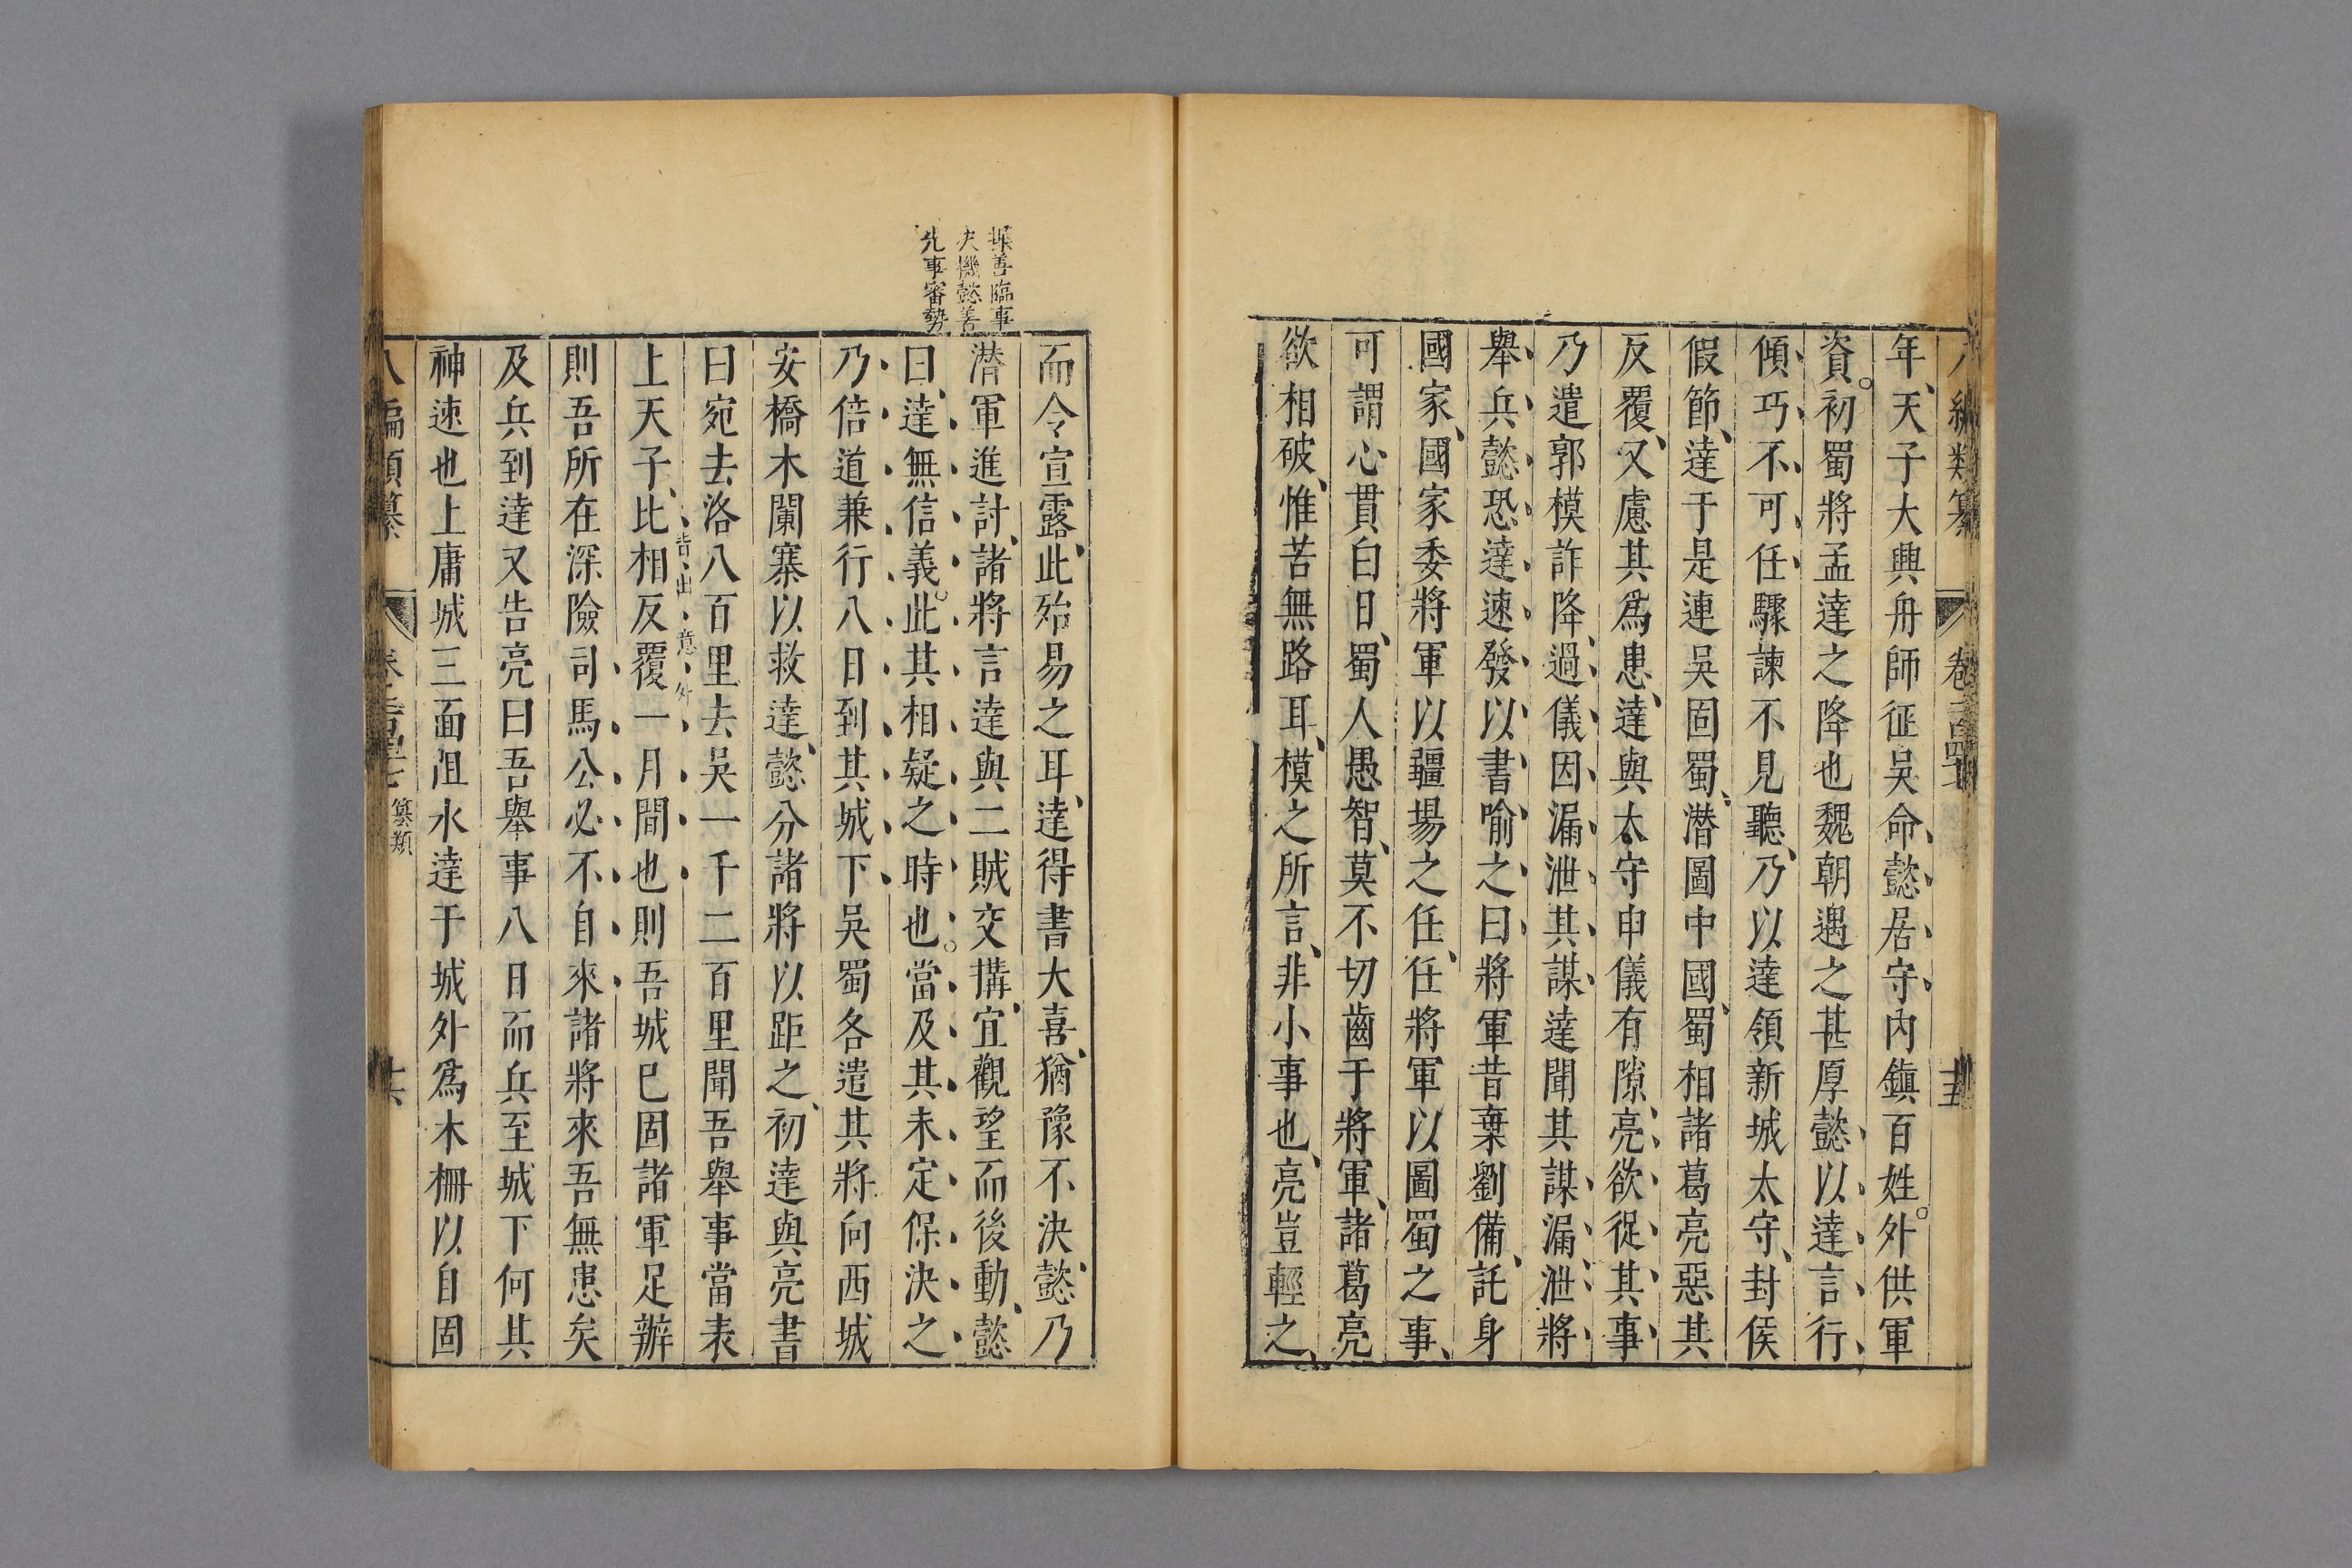 八編類纂 卷二百四十七 十五
年、天子大興舟師征吳命、懿、居、守、內鎮百姓。外供軍
資。初蜀將孟達之降也魏朝遇之甚厚懿、以、達、言、行、
傾、巧、不、可、任、驟諫不見聽、乃以達領新城太守、封侯
假節、達于是連吳固蜀、潛圖中國、蜀相諸葛亮惡其
反覆、又慮其爲患、達與太守申儀有隙亮、欲、從、其、事、
乃遣郭模詐降、過、儀、因、漏、泄、其、謀、達聞其謀、漏、泄、將、
舉、兵、懿、恐、達、速、發、以、書、喻、之、曰、將軍昔棄劉備、託身
國家、國家委將軍以疆場之任、任將軍以圖蜀之事、
可謂心貫白日、蜀人愚智、莫不切齒于將軍、諸葛亮
欲相破、惟苦無路耳、模之所言、非小事也、亮豈輕之、
操善臨事
決機懿善
先事審勢
而令宣露、此殆易之耳、達得書大喜、猶豫不決、懿、乃
潛軍進討、諸將言達與二賊交搆、宜觀望而後動、懿
曰、達、無、信、義。此、其、相、疑、之、時、也。當、及、其、未、定、保、決、之、
乃、倍、道、兼、行、八、日、到、其、城、下、吳蜀各遣其將向西城
安橋木闌寨以救達、懿分諸將以距之、初達與亮書
曰宛去洛八百里去吳一千二百里聞吾舉事當表
上天子、比、相、反、覆、一、月、間、也、則吾城已固諸軍足辦
皆出意外
則吾所在深險司、馬、公、必、不、自、來、諸將來吾無患矣
及兵到達又告亮曰吾舉事八日而兵至城下何其
神速也上庸城三面阻水達于城外爲木柵以自固
八編類纂 卷二百四十七 纂類 十六